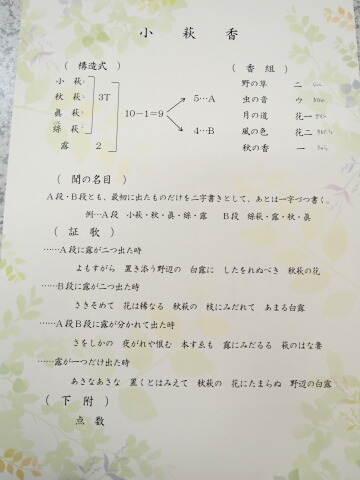 小萩香
（構造式）
（香組）
小萩
秋萩
眞萩
綜萩
露
3T
2
10－1＝9
5…A
4…B
野の草 二
虫の音 ウ
月の道 花一
風の色 花二
秋の香 一
（聞の名目）
A段・B段とも、最初に出たものだけを二字書きとして、あとは一字づつ書く。
例…A段 小萩・秋・眞・綜・露 B段 綜萩・露・秋・眞
（証歌）
……A段に露が二つ出た時
よもすがら 置き添う野辺の 白露に したをれぬべき 秋萩の花
……B段に露が二つ出た時
さきそめて 花は稀なる 秋萩の 枝にみだれて あまる白露
……A段B段に露が分かれて出た時
さをしかの 夜がれや恨む 本すゑも 露にみだるる 萩のはな妻
……露が一つだけ出た時
あさなあさな 置くとはみえて 秋萩の 花にたまらぬ 野辺の白露
（下附）
点数